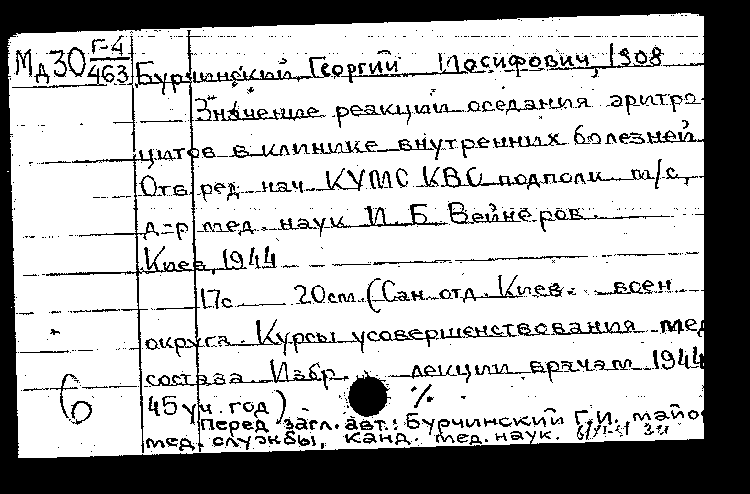 Мд30 Г-4/463
Бурчинский, Георгий Иосифович, 1908
Значение реакции оседания эритро-
цитов в клинике внутренних болезней
Отв ред нач КУМС КВО подполк м/с,
д-р мед. наук И. Б. Вейнеров.
Киев, 1944
17с 20см. (Сан. отд. Киев. воен
округа. Курсы усовершенствования мед
состава Избр. лекции врачам 1944
45 уч. год) %
6
Перед загл. авт.: Бурчинский Г.И. майо
мед. службы, канд. мед. наук.